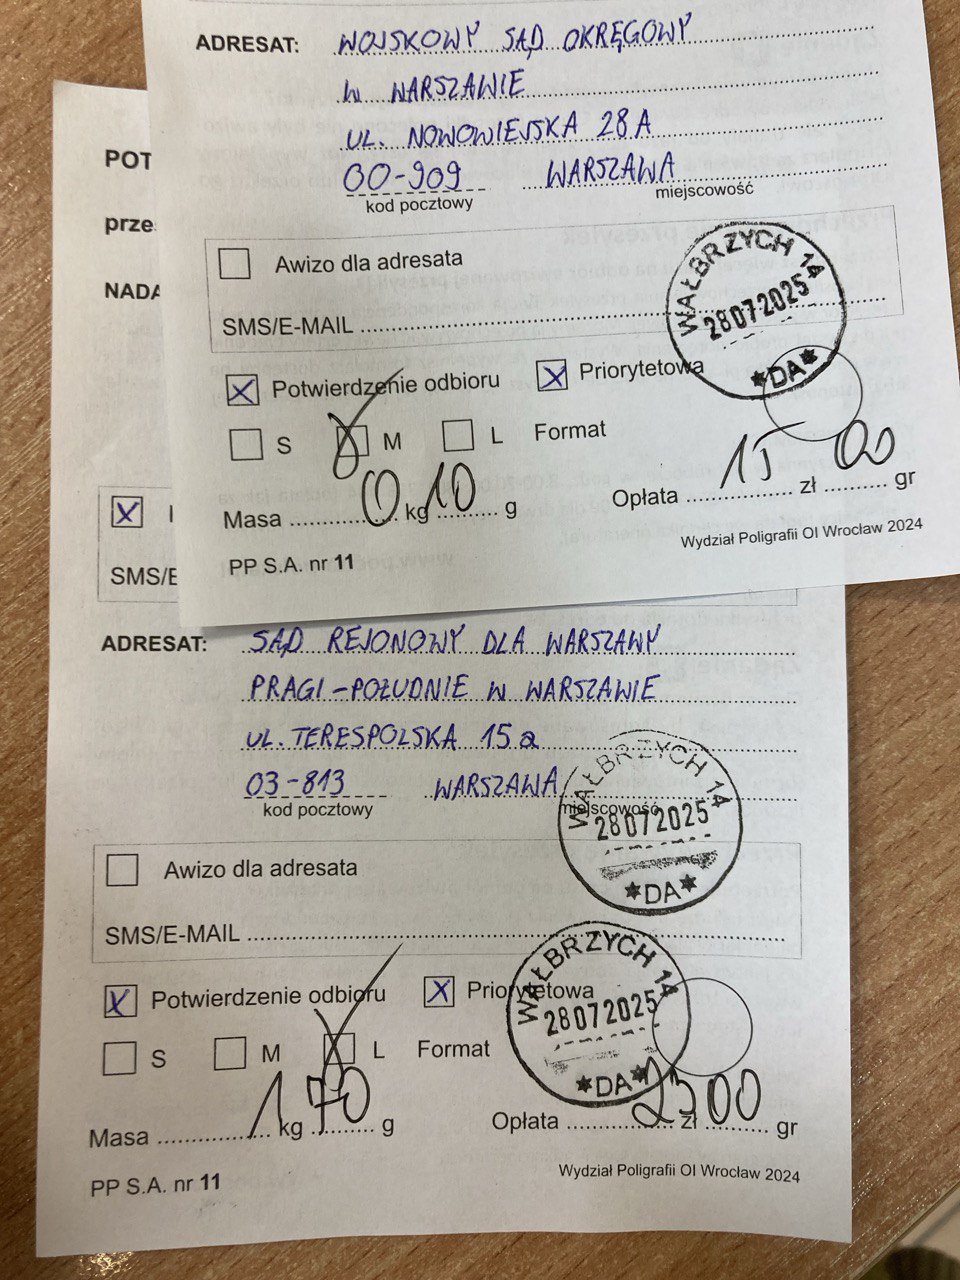 ADRESAT: WOJSKOWY SĄD OKRĘGOWY
W WARSZAWIE
UL. NOWOWIEJSKA 28A
00-909 WARSZAWA
kod pocztowy miejscowość
Awizo dla adresata
SMS/E-MAIL
WAŁBRZYCH 14
28072025
*DA*
Potwierdzenie odbioru Priorytetowa
S M L Format
Masa 0 kg 10 g Opłata 15 zł 00 gr
PP S.A. nr 11 Wydział Poligrafii OI Wrocław 2024
POT
prze
NADA
SMS/E
ADRESAT: SĄD REJONOWY DLA WARSZAWY
PRAGI-POŁUDNIE W WARSZAWIE
UL. TERESPOLSKA 15a
03-813 WARSZAWA
kod pocztowy miejscowość
WAŁBRZYCH 14
28072025
*DA*
Awizo dla adresata
SMS/E-MAIL
WAŁBRZYCH 14
28072025
*DA*
Potwierdzenie odbioru Priorytetowa
S M L Format
Masa 1 kg 70 g Opłata 23 zł 00 gr
PP S.A. nr 11 Wydział Poligrafii OI Wrocław 2024